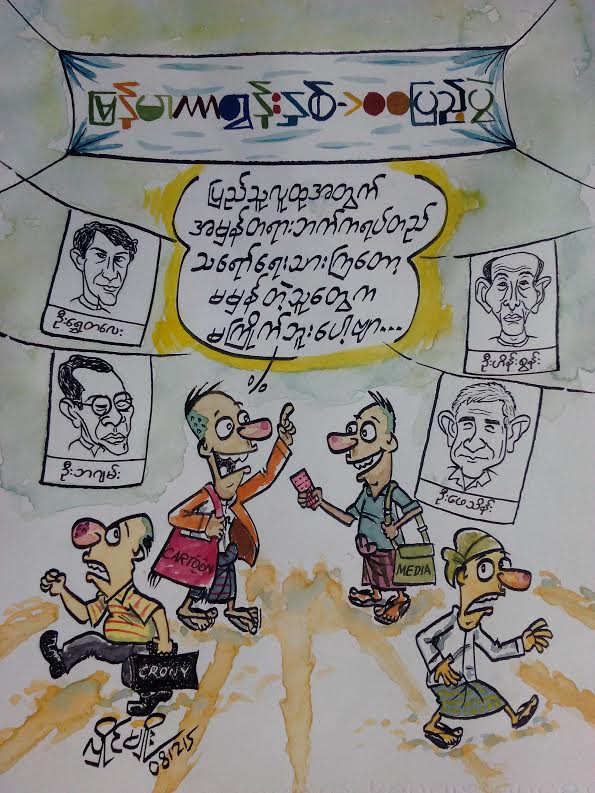 မြန်မာကာတွန်းနှစ်-၁၀၀ပြည့်ပွဲ
ပြည်သူလူထုအတွက်
အမှန်တရားဘက်ကရပ်တည်
သရော်ရေးသားကြတော့
မမှန်တဲ့သူတွေက
မကြိုက်ဘူးပေါ့ဗျာ...
ဦးရွှေတလေး
ဦးဟိန်စွန်း
ဦးဘဂျမ်း
ဦးဖေသိန်း
CARTOON
MEDIA
CRONY
လှိုင်မျိုး
081215